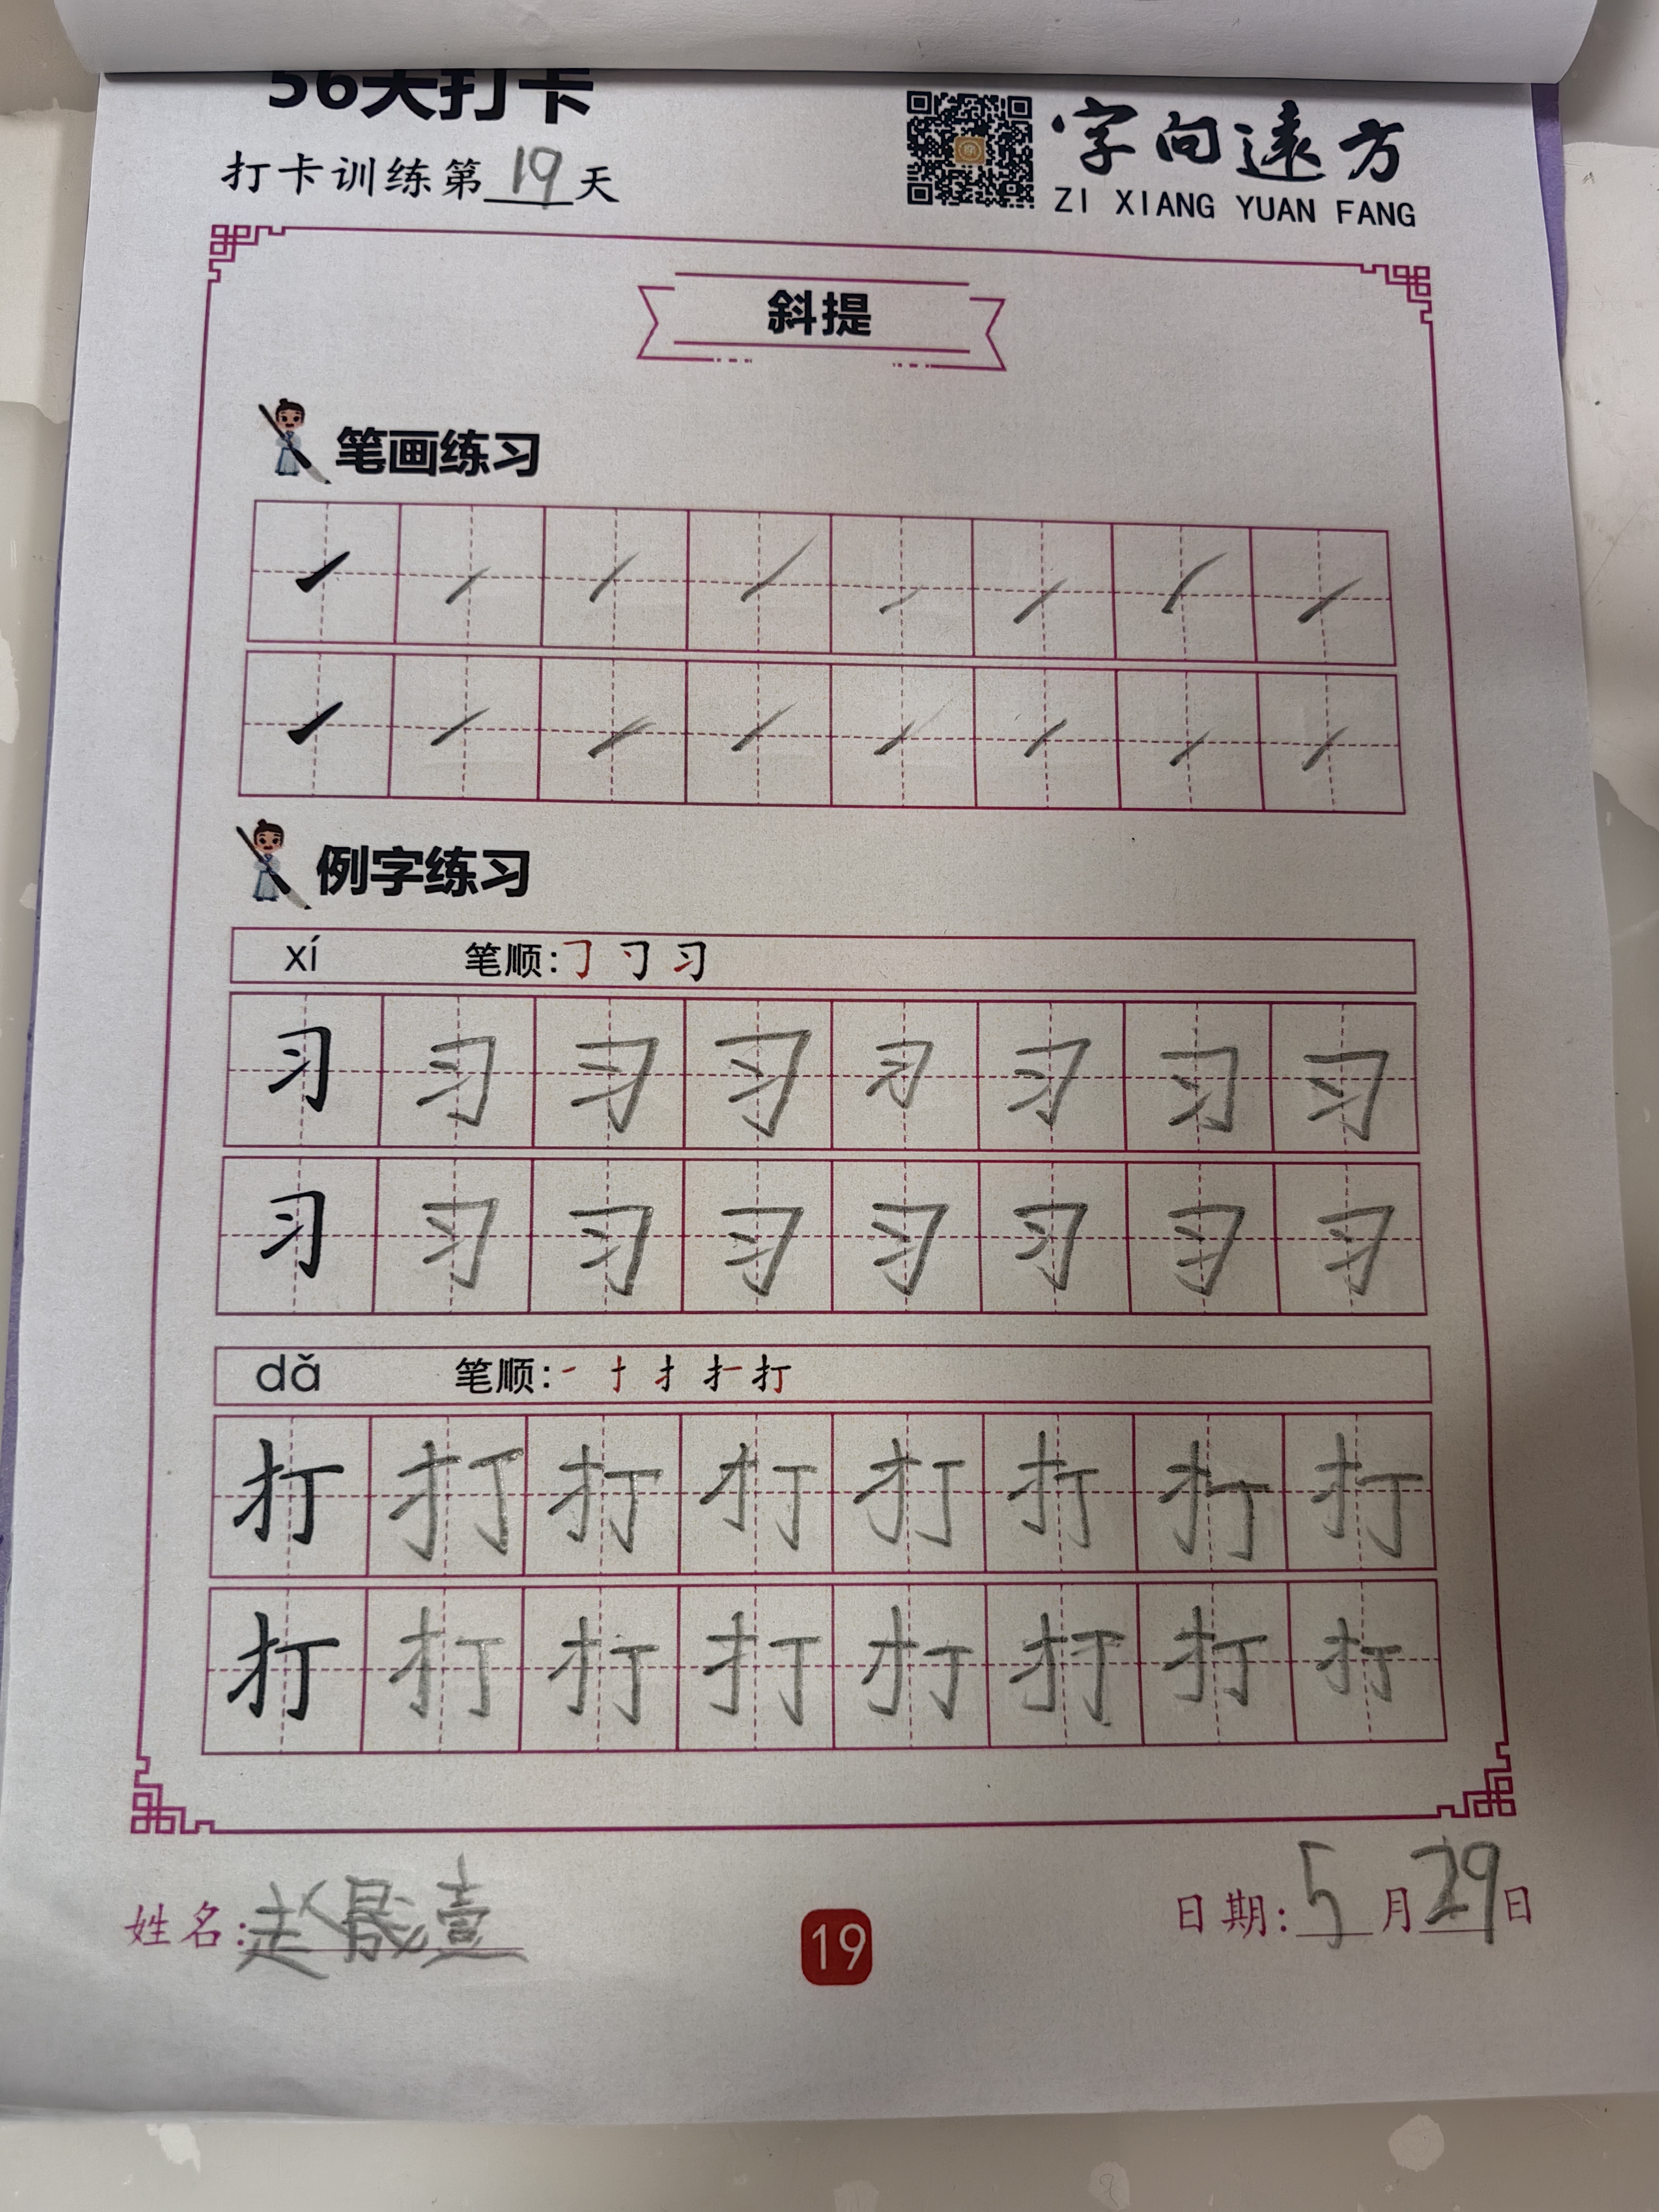 56天打卡
打卡训练第19天
字向遠方
ZI XIANG YUAN FANG
斜提
笔画练习
例字练习
xí 笔顺:㇆ 习
习 习 习 习 习 习 习 习
习 习 习 习 习 习 习 习
dǎ 笔顺:一 扌 打
打 打 打 打 打 打 打 打
打 打 打 打 打 打 打 打
姓名:赵晟壹
19
日期:5月29日